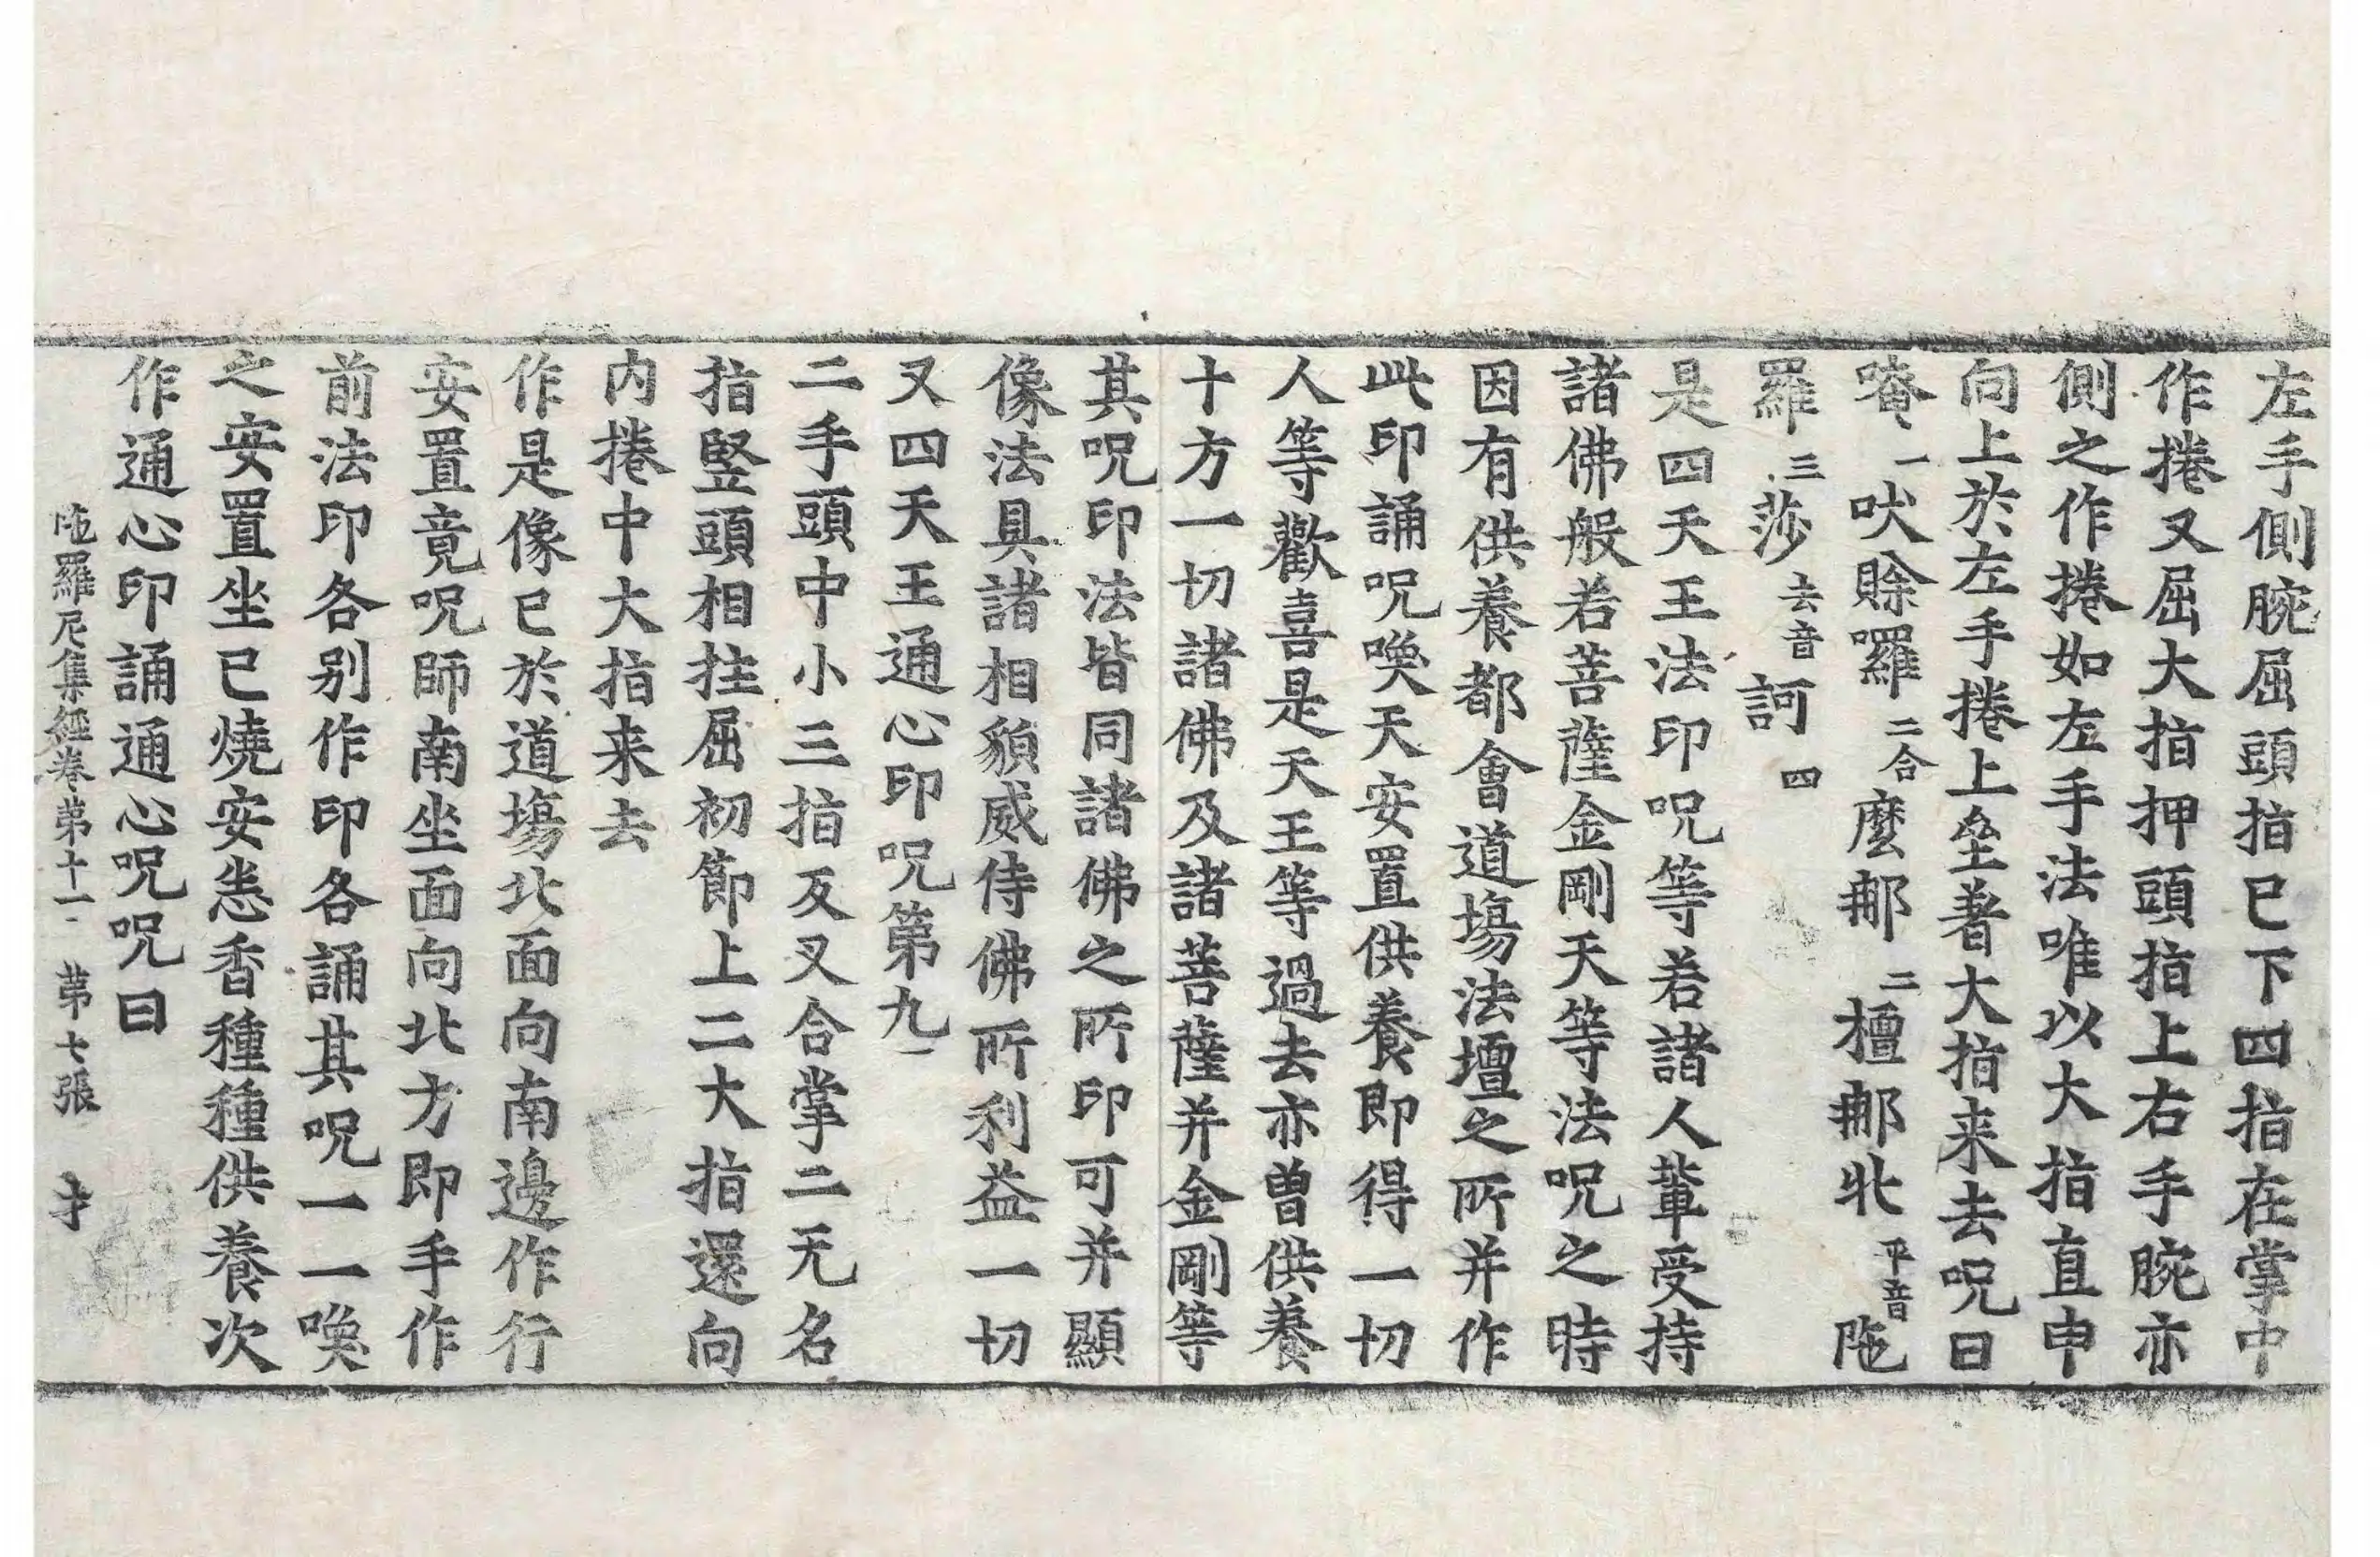 左手側腕屈頭指已下四指在掌中
作捲又屈大指押頭指上右手腕亦
側之作捲如左手法唯以大指直申
向上於左手捲上壘著大指来去呪曰
唵一吠賖囉二合麼那二檀那牝平音陁
羅三莎去音訶四
是四天王法印呪等若諸人輩受持
諸佛般若菩薩金剛天等法呪之時
因有供養都會道塲法壇之所并作
此印誦呪喚天安置供養即得一切
人等歡喜是天王等過去亦曾供養
十方一切諸佛及諸菩薩并金剛等
其呪印法皆同諸佛之所印可并顯
像法具諸相貌威侍佛所利益一切
又四天王通心印呪第九
二手頭中小三指反叉合掌二无名
指竪頭相拄屈初節上二大指還向
内捲中大指来去
作是像已於道塲北面向南邊作行
安置竟呪師南坐面向北方即手作
前法印各別作印各誦其呪一一喚
之安置坐已燒安悉香種種供養次
作通心印誦通心呪呪曰
陁羅尼集經卷第十一 第七張 才